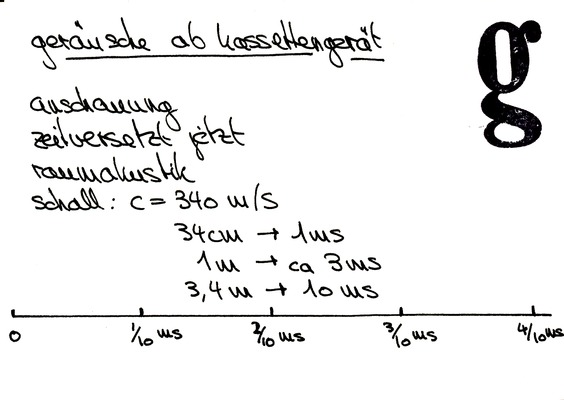 geräusche ab kassettengerät
g
anschauung
zeitversetzt jetzt
raumakustik
schall: c = 340 m/s
34cm → 1ms
1m → ca 3ms
3,4m → 10 ms
0 1/10 ms 2/10 ms 3/10 ms 4/10 ms